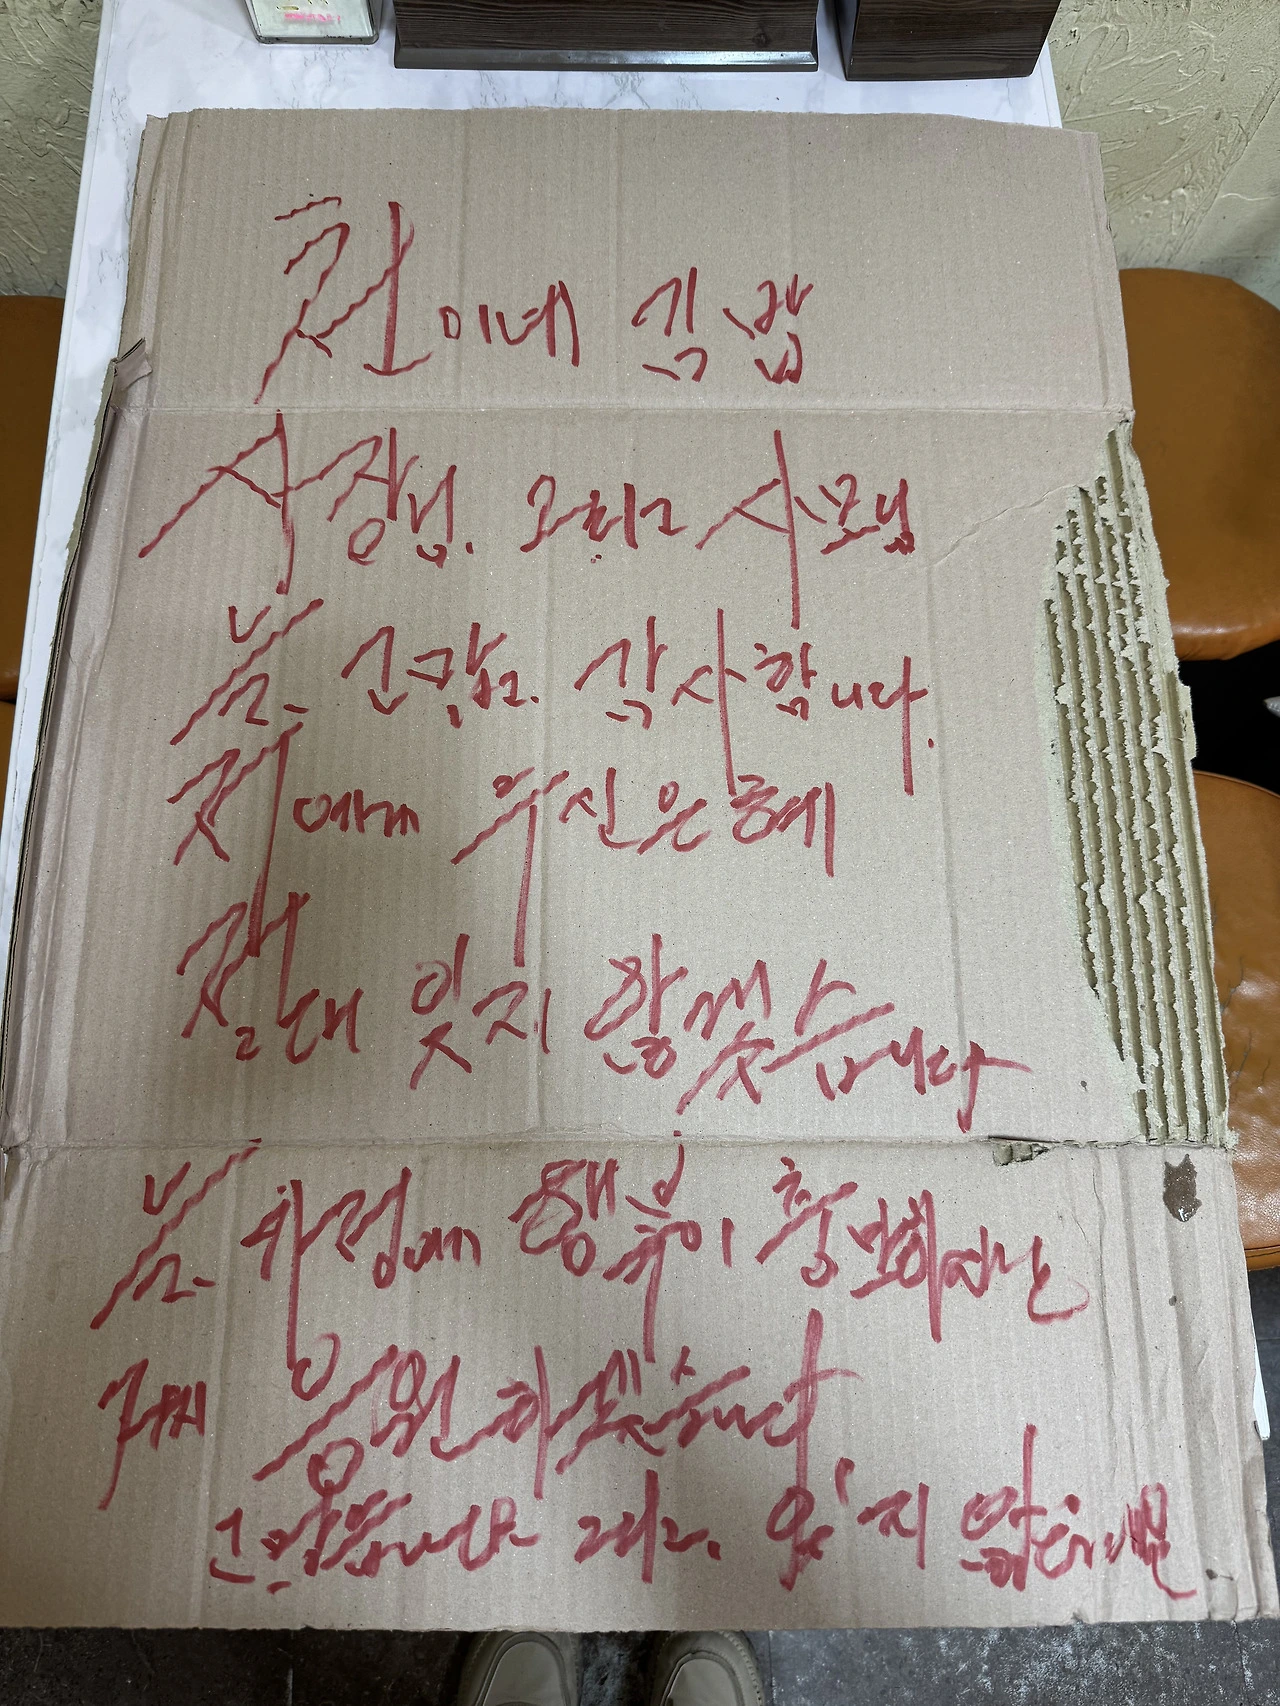 천이네 김밥
사장님. 그리고 사모님
분. 고맙고. 감사합니다.
저에게 주신 은혜
절대 잊지 않겠습니다
분. 가정에 행복이 충만하시는
응원하겠습니다.
고맙습니다 그리고. 잊지 않을게요